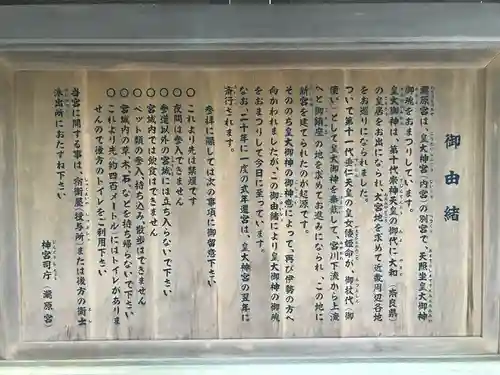 御由緒
瀧原宮は、皇大神宮(内宮)の別宮で、天照坐皇大御神
御魂をおまつりしています。
皇大御神は、第十代崇神天皇の御代に大和(奈良県)
の皇居をお出になられ、大宮地を求めて近畿周辺各地
をお巡りになられました。
ついで第十一代垂仁天皇の皇女倭姫命が、御杖代(御
使い)として皇大御神を奉戴して、宮川下流から上流
へと御鎮座の地を求めてお進みになられ、この地に
新宮を建てられたのが起源です。
そののち皇大御神の御神意によって、再び伊勢の方へ
向かわれましたが、この御由緒により皇大御神の御魂
をおまつりして今日に至っています。
なお、二十年に一度の式年遷宮は、皇大神宮の翌年に
斎行されます。
参拝に際しては次の事項に御留意下さい
○これより先は禁煙です
○夜間は参入できません
○参道以外の宮域には立ち入らないで下さい
○宮域内では飲食はできません
○ペット類の参入・持ち込み、散歩はできません
○宮域内の草、木、石、などを持ち帰らないで下さい
○これより先、約四百メートルにはトイレがありま
せんので後方のトイレをご利用下さい
当宮に関する事は、宿衛屋(授与所)または後方の衛士
派出所におたずね下さい
神宮司庁(瀧原宮)